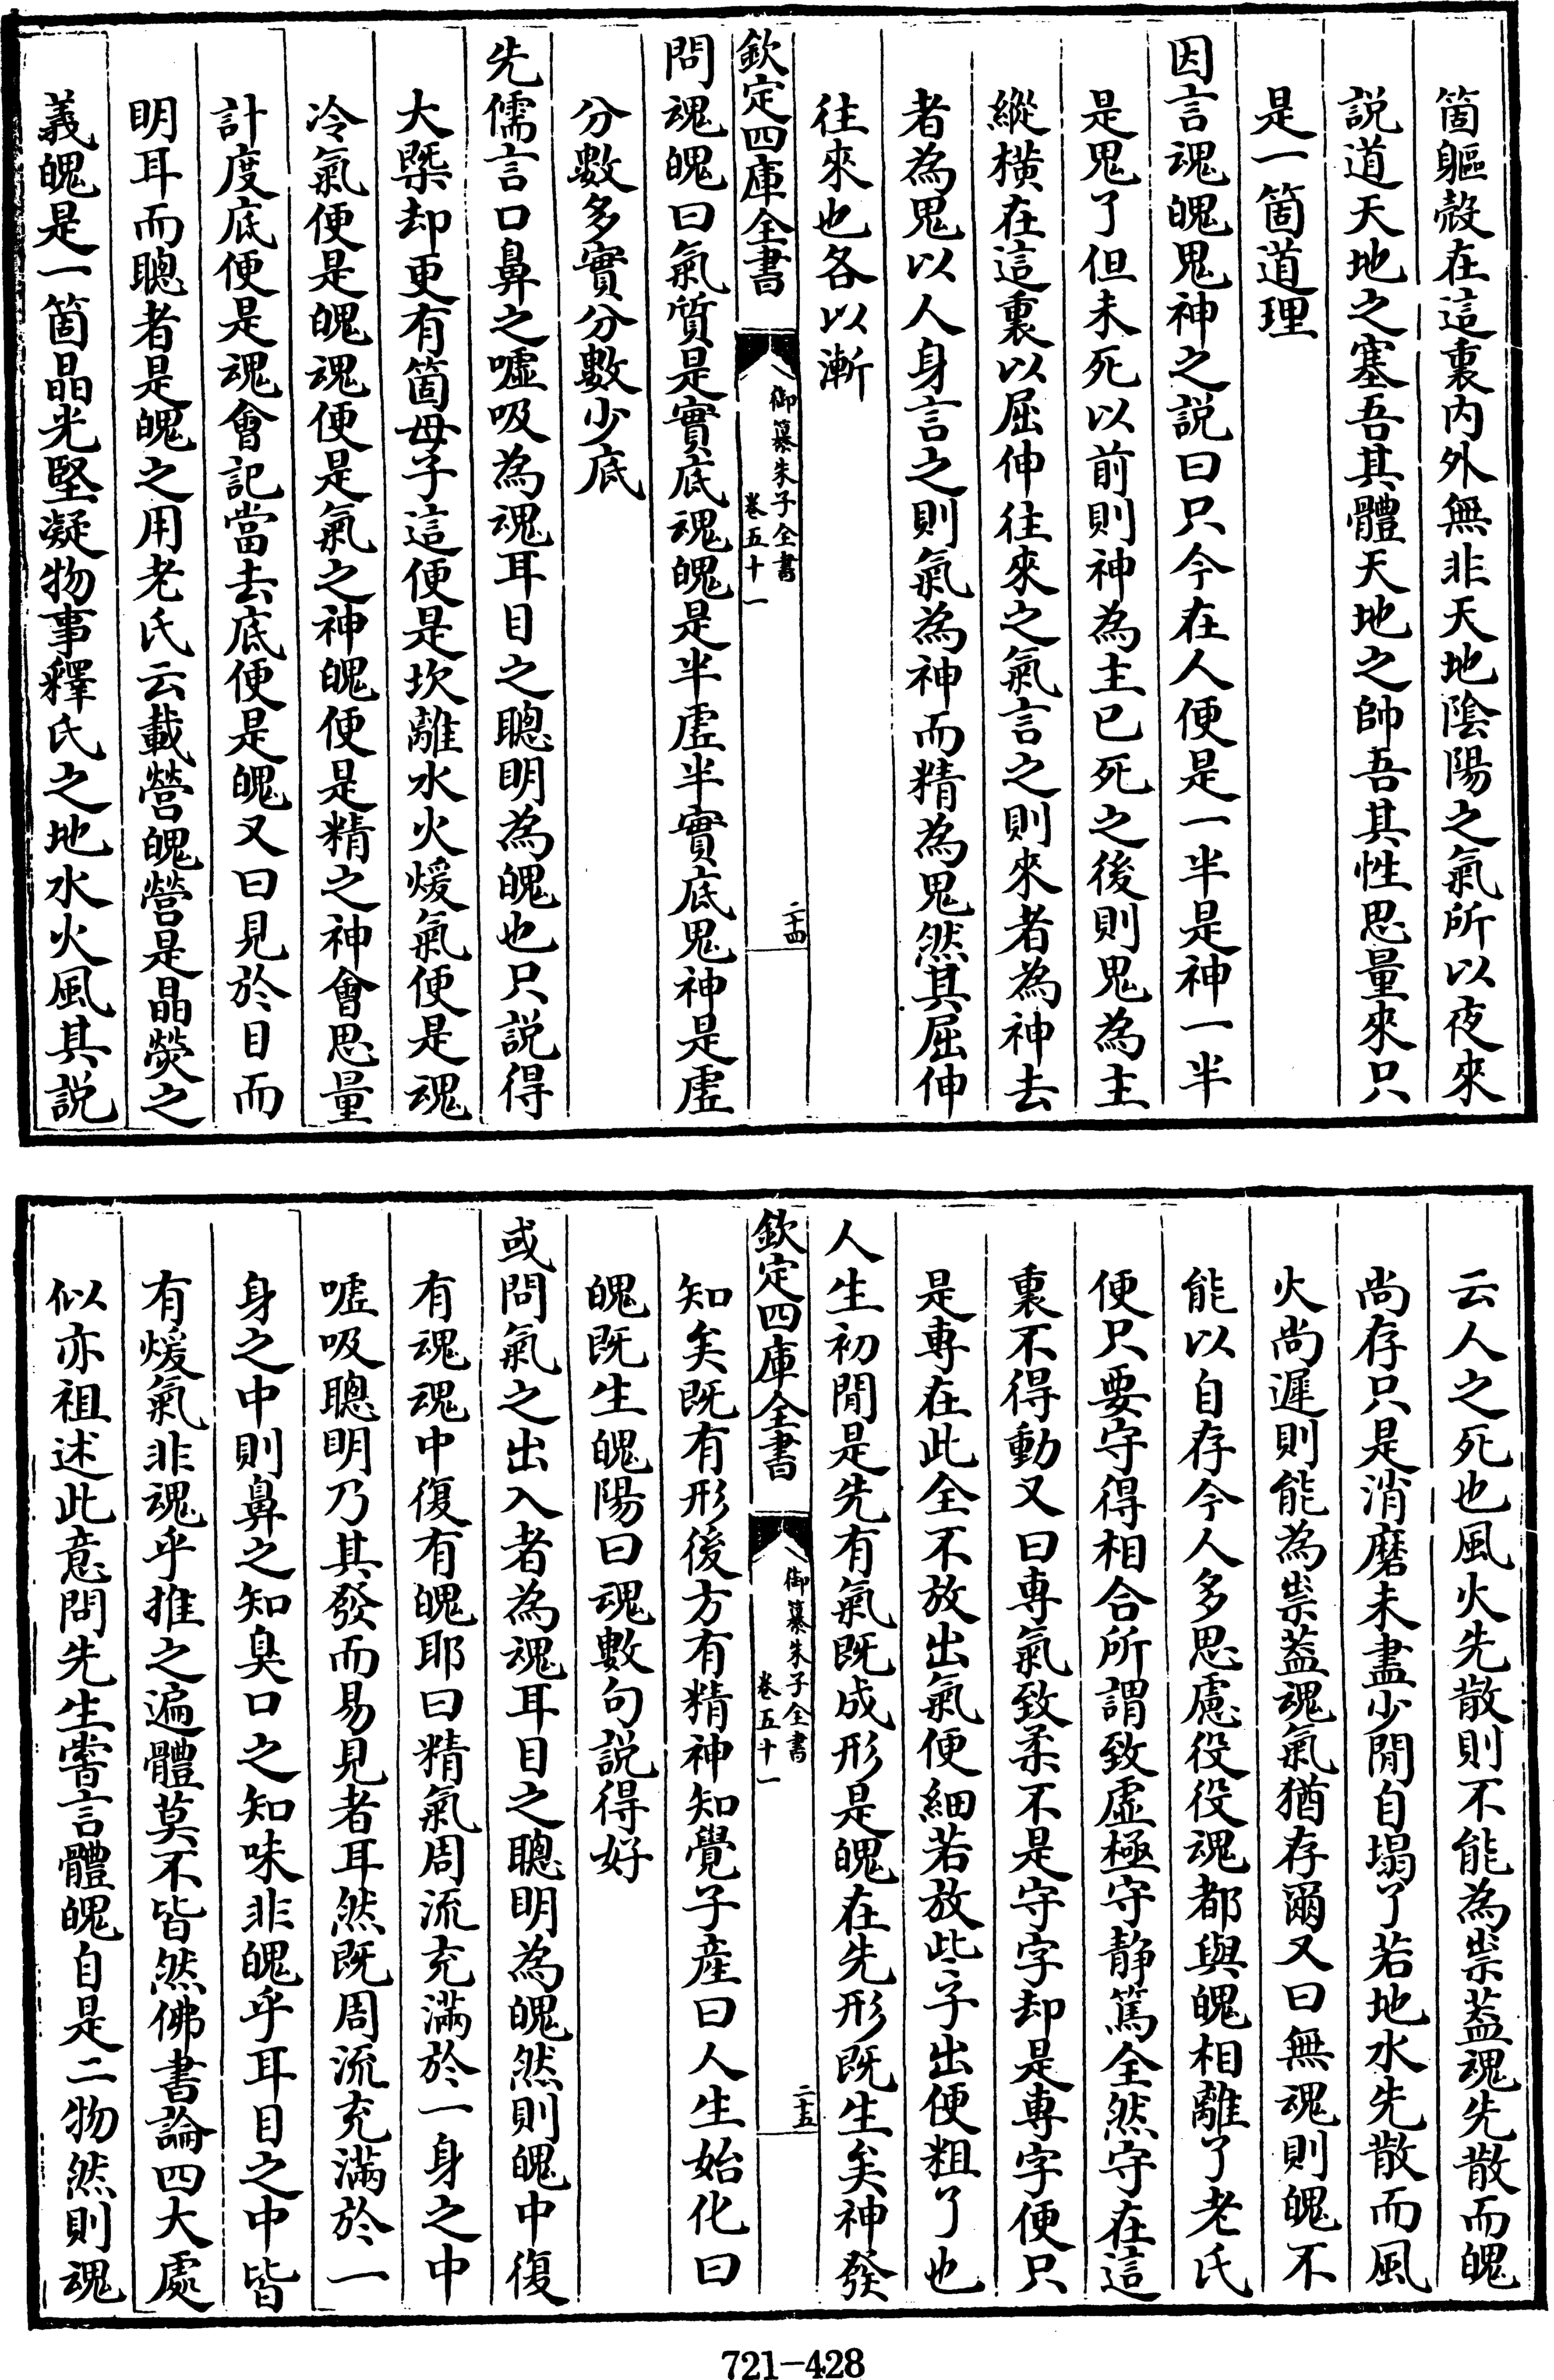 箇軀殻在這裏内外無非天地陰陽之氣所以夜來
説道天地之塞吾其體天地之帥吾其性思量來只
是一箇道理
因言魂魄鬼神之説曰只今在人便是一半是神一半
是鬼了但未死以前則神為主已死之後則鬼為主
縱横在這裏以屈伸往來之氣言之則來者為神去
者為鬼以人身言之則氣為神而精為鬼然其屈伸
往來也各以漸
欽定四庫全書
御纂朱子全書
卷五十一
二十四
問魂魄曰氣質是實底魂魄是半虚半實底鬼神是虚
分數多實分數少底
先儒言口鼻之嘘吸為魂耳目之聰明為魄也只説得
大槩却更有箇母子這便是坎離水火煖氣便是魂
冷氣便是魄魂便是氣之神魄便是精之神會思量
計度底便是魂會記當去底便是魄又曰見於目而
明耳而聰者是魄之用老氏云載營魄營是晶熒之
義魄是一箇晶光堅凝物事釋氏之地水火風其説
云人之死也風火先散則不能為祟葢魂先散而魄
尚存只是消磨未盡少閒自塌了若地水先散而風
火尚遲則能為祟葢魂氣猶存爾又曰無魂則魄不
能以自存今人多思慮役役魂都與魄相離了老氏
便只要守得相合所謂致虚極守静篤全然守在這
裏不得動又曰專氣致柔不是守字却是專字便只
是專在此全不放出氣便細若放些子出便粗了也
人生初閒是先有氣既成形是魄在先形既生矣神發
欽定四庫全書
御纂朱子全書
卷五十一
二十五
知矣既有形後方有精神知覺子産曰人生始化曰
魄既生魄陽曰魂數句説得好
或問氣之出入者為魂耳目之聰明為魄然則魄中復
有魂魂中復有魄耶曰精氣周流充滿於一身之中
嘘吸聰明乃其發而易見者耳然既周流充滿於一
身之中則鼻之知臭口之知味非魄乎耳目之中皆
有煖氣非魂乎推之遍體莫不皆然佛書論四大處
似亦祖述此意問先生嘗言體魄自是二物然則魂
721-428